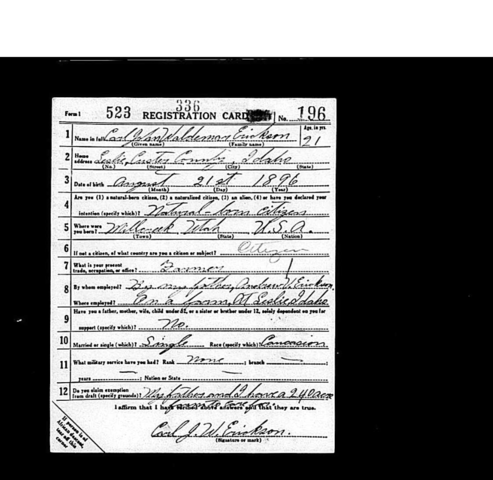 336
Form 1 523 REGISTRATION CARD No. 196
1 Name in full Carl John Waldemar Erickson Age, in yrs. 21
(Given name) (Family name)
2 Home address Leslie, Custer County, Idaho
(No.) (Street) (City) (State)
3 Date of birth August 21st 1896
(Month) (Day) (Year)
4 Are you (1) a natural-born citizen, (2) a naturalized citizen, (3) an alien, (4) or have you declared your
intention (specify which)? Natural-born citizen
5 Where were you born? Millcreek Utah U.S.A.
(Town) (State) (Nation)
6 If not a citizen, of what country are you a citizen or subject? Citizen
7 What is your present trade, occupation, or office? Farmer
8 By whom employed? By my father, Andrew V. Erickson
Where employed? On a farm, At Leslie Idaho.
9 Have you a father, mother, wife, child under 12, or a sister or brother under 12, solely dependent on you for
support (specify which)? No.
10 Married or single (which)? Single Race (specify which)? Caucasion
11 What military service have you had? Rank None ; branch —
years — ; Nation or State —
12 Do you claim exemption from draft (specify grounds)? My father and I have a 240 acre
I affirm that I have verified above answers and that they are true.
Carl J. W. Erickson.
(Signature or mark)